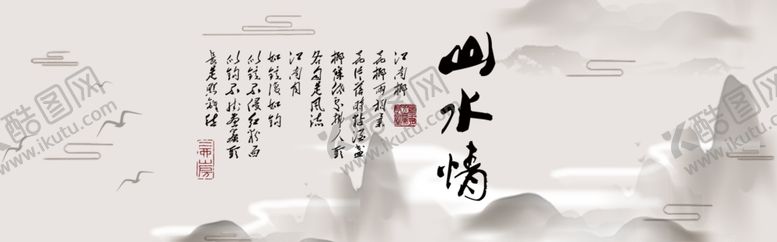 山水情
江南柳
花柳两相柔
花片落时黏酒盏
柳条低处拂人头
各自是风流
江南月
如镜复如钩
似镜不侵红粉面
似钩不挂画帘头
长是照离愁
酷图网
www.ikutu.com
酷图网
www.ikutu.com
酷图网
www.ikutu.com